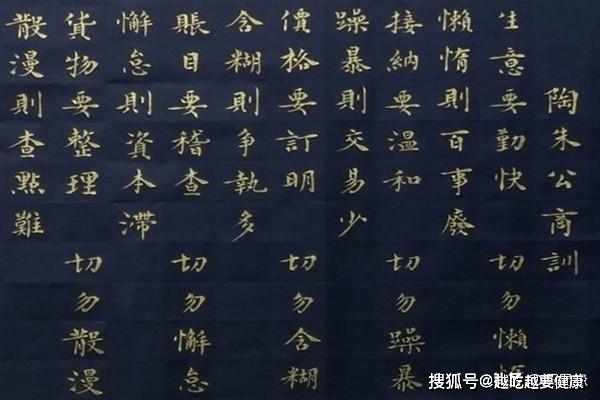 陶朱公商訓
生意要勤快 切勿懶
懶惰則百事廢
接納要温和 切勿躁暴
躁暴則交易少
價格要訂明 切勿含糊
含糊則争執多
賬目要稽查 切勿懈怠
懈怠則資本滯
貨物要整理 切勿散漫
散漫則查點難
搜狐号@越吃越要健康